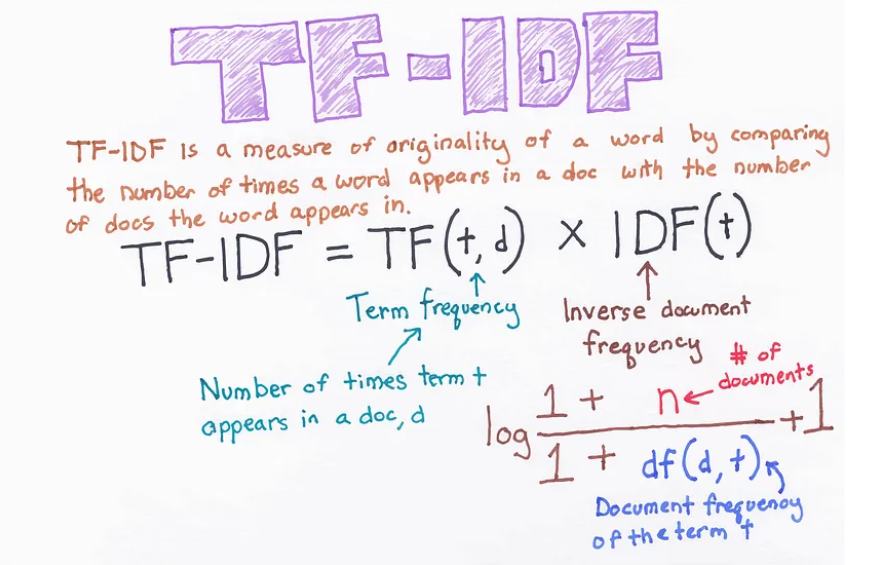 TF-IDF
TF-IDF is a measure of originality of a word by comparing
the number of times a word appears in a doc with the number
of docs the word appears in.
TF-IDF = TF(t, d) × IDF(t)
Term frequency
Inverse document
frequency
Number of times term t
appears in a doc, d
# of
documents
log (1 + n) / (1 + df(d, t)) + 1
Document frequency
of the term t